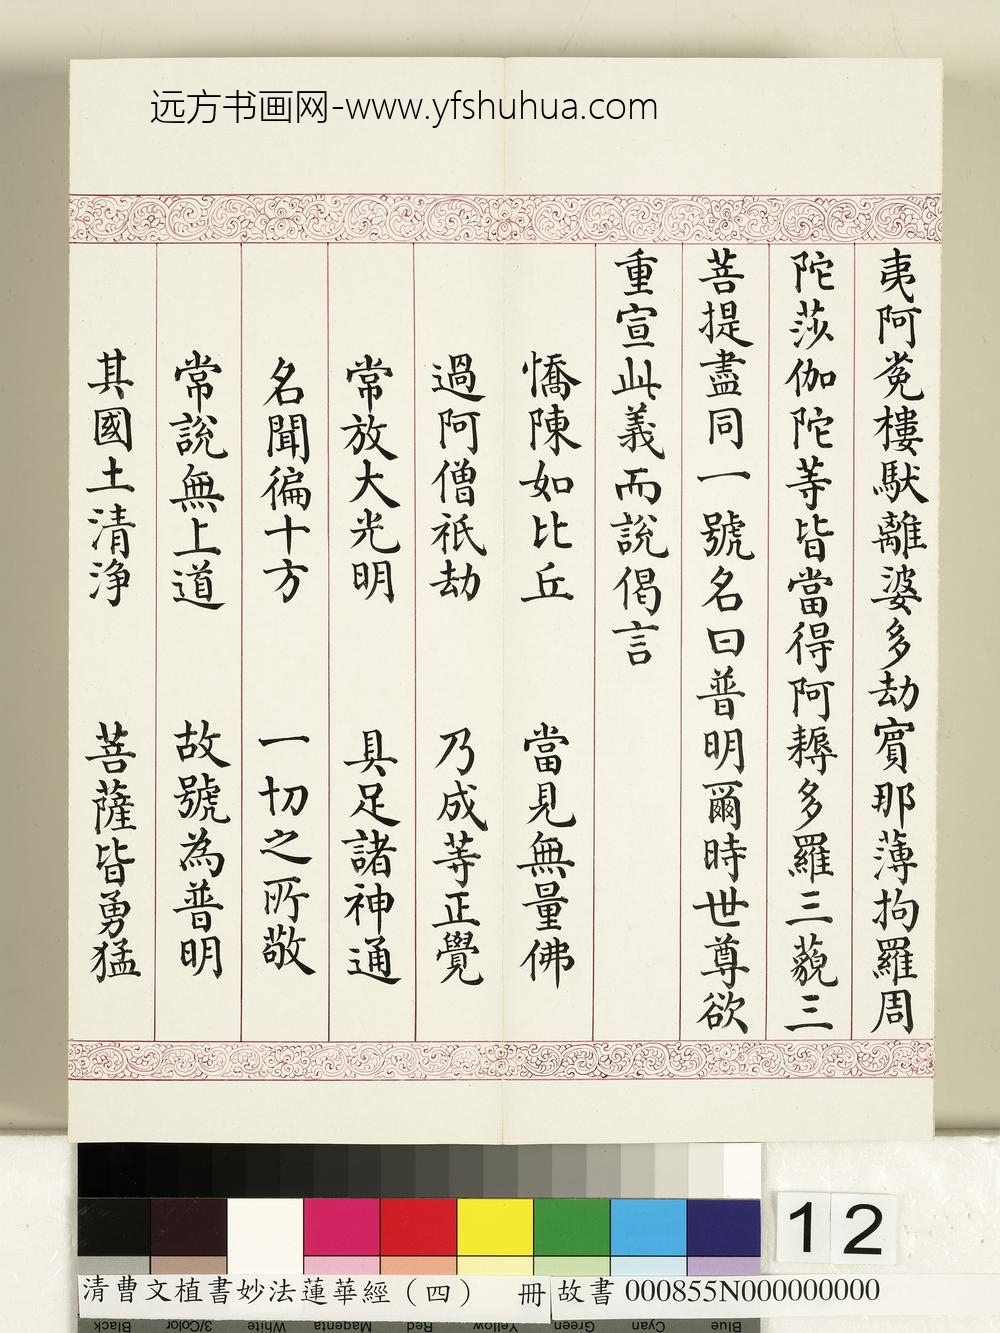 远方书画网-www.yfshuhua.com
夷阿㝹樓馱離婆多劫賓那薄拘羅周
陀莎伽陀等皆當得阿耨多羅三藐三
菩提盡同一號名曰普明爾時世尊欲
重宣此義而說偈言
憍陳如比丘 當見無量佛
過阿僧祇劫 乃成等正覺
常放大光明 具足諸神通
名聞徧十方 一切之所敬
常說無上道 故號為普明
其國土清淨 菩薩皆勇猛
12
清曹文植書妙法蓮華經（四） 冊 故書 000855N000000000
Black 3/Color White Magenta Red Yellow Green Cyan Blue